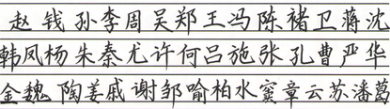 赵钱孙李周吴郑王冯陈褚卫蒋沈
韩凤杨朱秦尤许何吕施张孔曹严华
金魏陶姜戚谢邹喻柏水窦章云苏潘葛